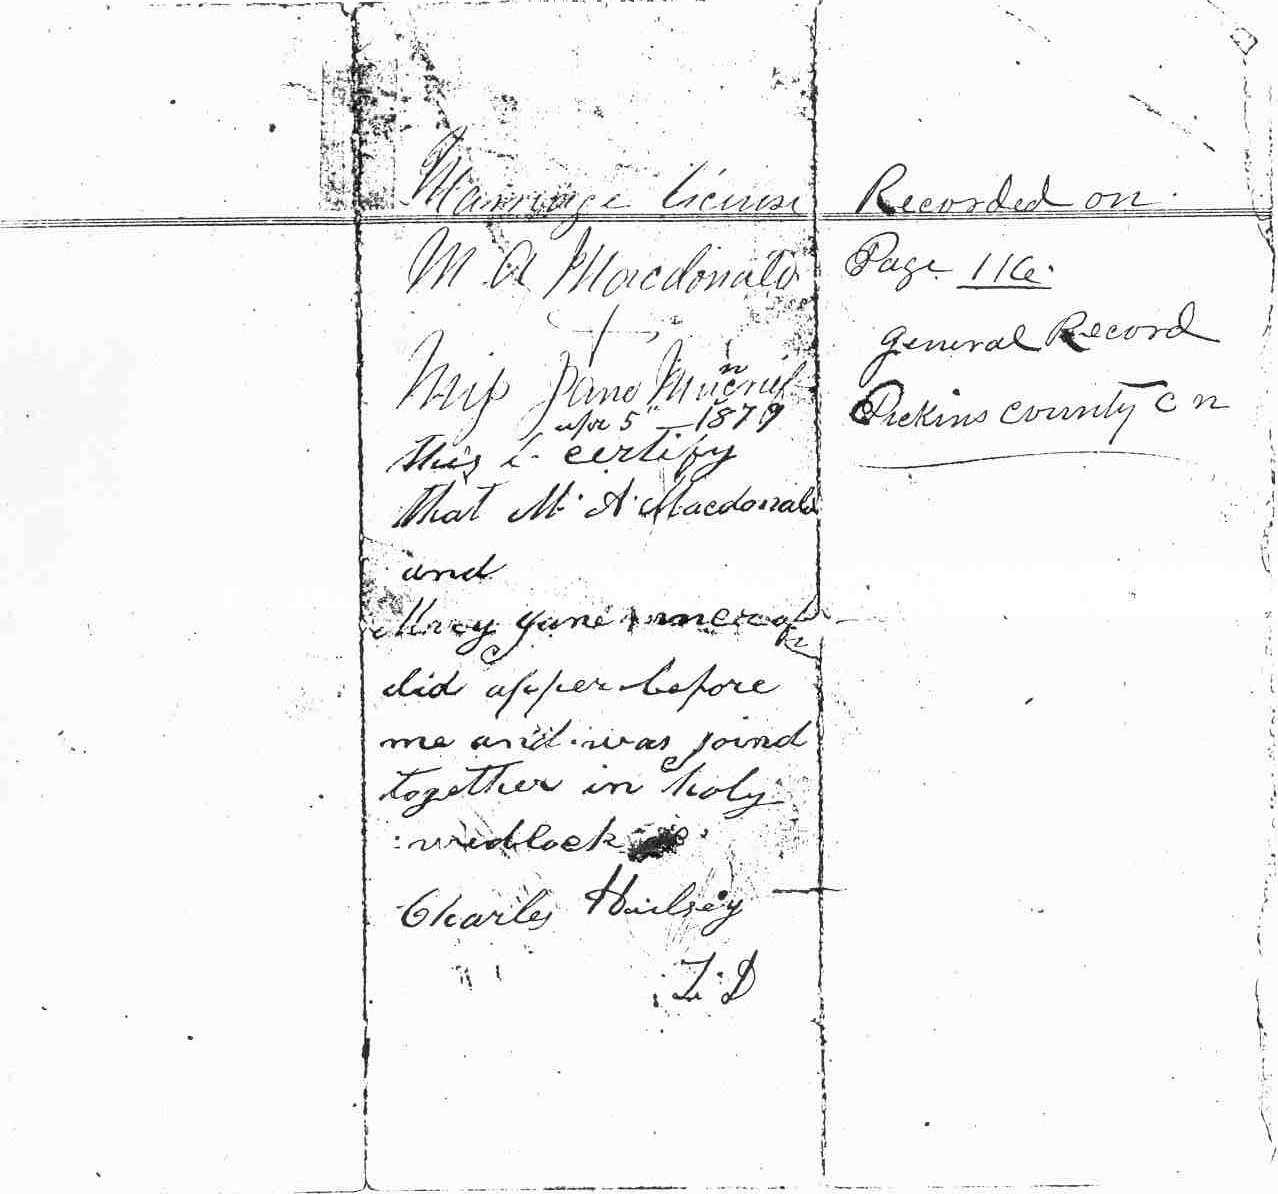 Marriage License
M A Macdonald
&
Miss Jane
apr 5" 1879
this is certify
that M. A. Macdonald
and
Jane
did apper before
me and was joind
together in holy
wedlock
Charles Hailsey
Recorded on
Page 116.
General Record
Pickins County C N